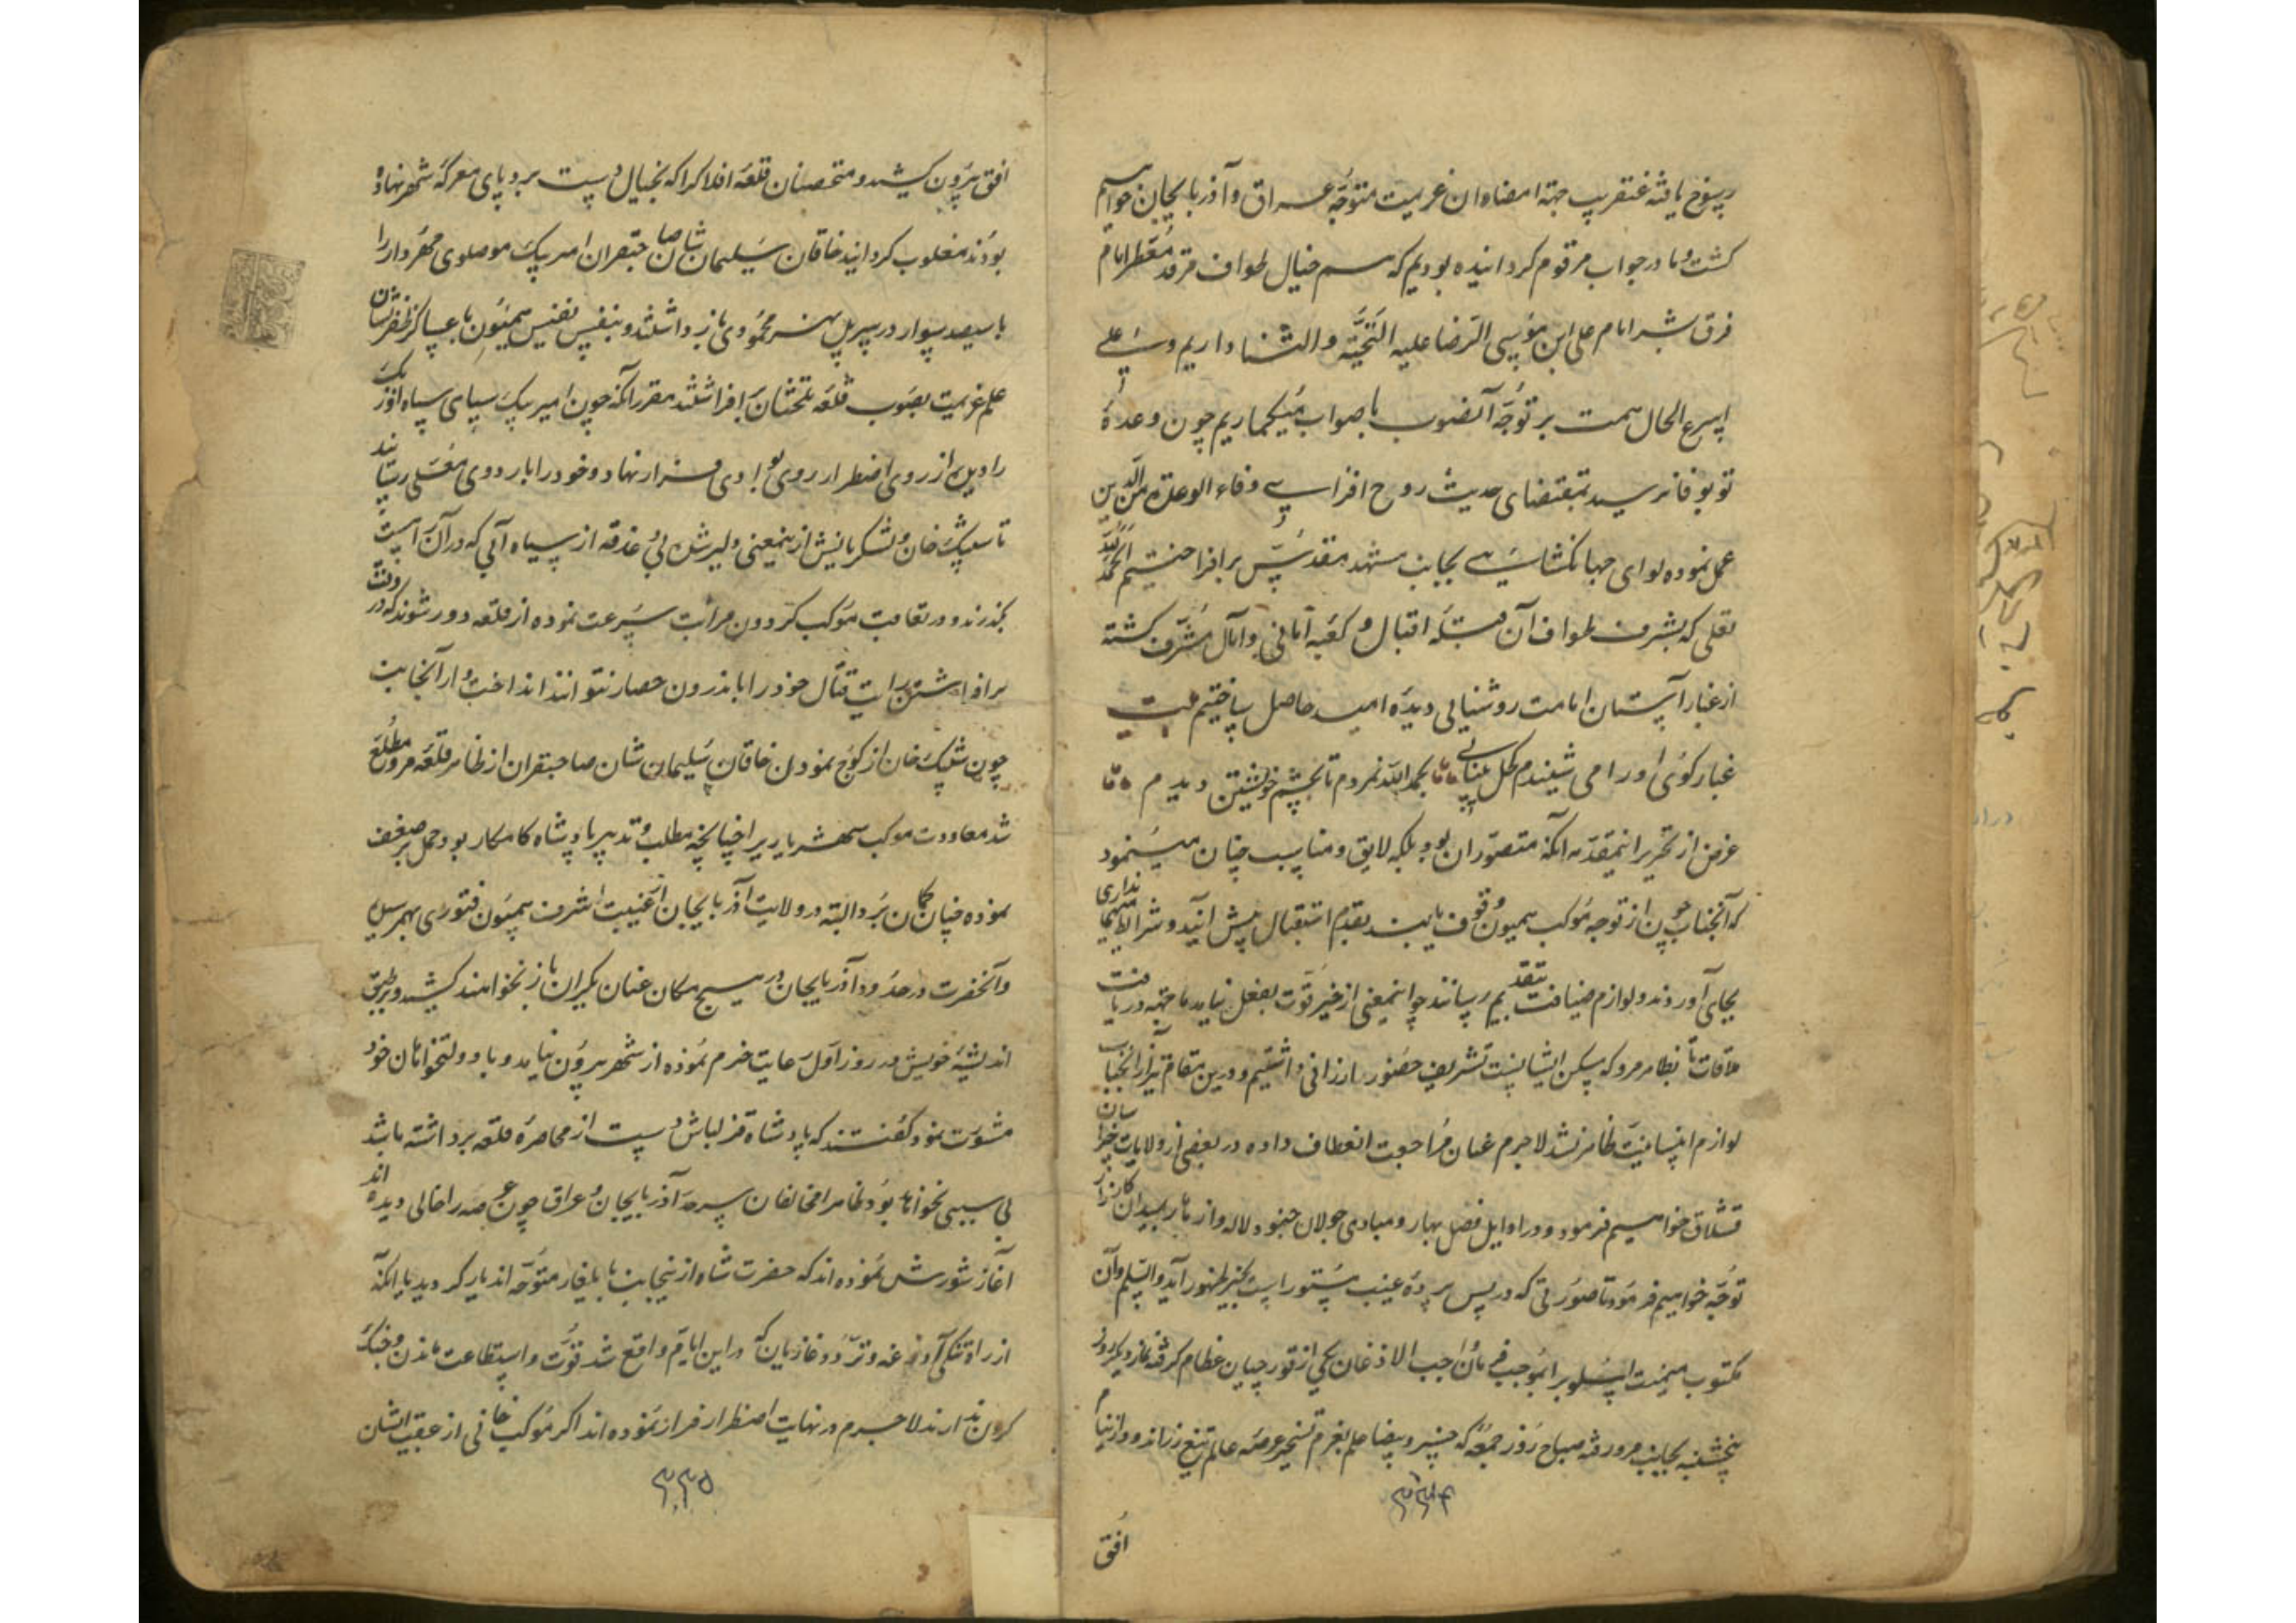 رسوخ یافته عنقریب جهة امضاء ان عزیمت متوجه عراق و آذربایجان خواهیم
کشت و ما در جواب مرقوم کردانیده بودیم که هم خیال طواف مرقد معطر امام
فرق بشر امام علی ابن موسی الرضا علیه التحیة و الثنا داریم و علی
اسرع الحال همت بر توجه آنصوب با صواب میکماریم چون وعدهٔ
تو بوفا نرسید بمقتضای حدیث روح افزای وفاء الوعد من الدین
عمل نموده لوای جهانکشای بجانب مشهد مقدس برافراختیم الحمد لله
تعلی که بشرف طواف آن قبلهٔ اقبال و کعبهٔ امانی و آمال مشرف کشته
از غبار آستان امامت روشنایی دیدهٔ امید حاصل ساختیم بیت
غبار کوی او را می شنیدم کحل بینایی بحمد الله نمردم تا بچشم خویشتن دیدم
غرض از تحریر اینمقدمه آنکه متصور ان بود بلکه لایق و مناسب چنان مینمود
که آنجناب چون از توجه موکب همیون وقوف یابند بقدم استقبال پیش آیند و شرایط مهمانداری
بجای آورند و لوازم ضیافت بتقدیم رسانند چو اینمعنی از حیز قوت بفعل نیامد ما جهة دریافت
ملاقات تا بظاهر مرو که مسکن ایشانست تشریف حضور ارزانی داشتیم و درین مقام نیز از آنجناب
لوازم انسانیت ظاهر نشد لاجرم عنان مراجعت انعطاف داده در بعضی از ولایات خراسان
قشلاق خواهیم فرمود و در اوایل فصل بهار و مبادی جولان جنود لاله و ازهار بمیدان کارزار
توجه خواهیم فرمود تا صورتی که در پس پردهٔ غیب مستور است بحیز ظهور آید و السلم و آن
مکتوب میمنت اسلوبرا بموجب فرمان واجب الاذعان یکی از قورچیان عظام کرفته نماز دیکر روز
پنجشنبه بجانب مرو رفته صباح روز جمعه که خسرو بیضا علم بعزم تسخیر عرصهٔ عالم تیغ زراندود از نیام
۳۳۴
افق
افق بیرون کشید و متحصنان قلعهٔ افلاکرا که بخیال دست برد پای معرکهٔ شهر نهاده
بودند مغلوب کردانید خاقان سلیمان شان صاحبقران امیر بیک موصلوی مهردار را
با سیصد سوار در سر پل نهر محمودی باز داشتند و بنفس نفیس همیون با عساکر ظفر نشان
علم عزیمت بصوب قلعه تلختان افراشتند مقرر آنکه چون امیر بیک سیاهی سپاه اوزبک
را دید از روی اضطرار روی بوادی فرار نهاد و خود را باردوی معلی رساند
تا شیبک خان و لشکریانش از ینمعنی دلیر شده بی غدقه از سیاه آبی که در آن است
بکذرند و در تعاقب موکب کردون مراتب سرعت نموده از قلعه دور شوند که در وقت
برافراشتن رایت قتال خود را باندرون حصار نتوانند انداخت و از آنجانب
چون شیبک خان از کوچ نمودن خاقان سلیمان شان صاحبقران از ظاهر قلعه مرو مطلع
شد معاودت موکب شهریاریرا چنانچه مطلب و تدبیر پادشاه کامکار بود حمل بر ضعف
نموده چنان کمان برد البته در ولایت آذربایجان از غیبت اشرف همیون فتوری بهم رسیده
و آنحضرت در حدود آذربایجان در هیچ مکان عنان یکران باز نخواهند کشید و بر طبق
اندیشهٔ خویش در روز اول رعایت حزم نموده از شهر بیرون نیامد و با دولتخواهان خود
مشورت نمود کفتند که پادشاه قزلباش دست از محاصرهٔ قلعه برداشته باشد
بی سببی نخواهد بود ظاهرا مخالفان سرحد آذربایجان و عراق چون عرصه را خالی دیده اند
آغاز شورش نموده اند که حضرت شاه از ینجانب بایلغار متوجه اندیار کردید یا آنکه
از راه تنکی آذوغه و تردد غازیان که در این ایام واقع شد قوت و استطاعت ماندن و جنک
کردن ندارند لاجرم در نهایت اضطرار فرار نموده اند اکر موکب خانی از عقب ایشان
۳۳۵